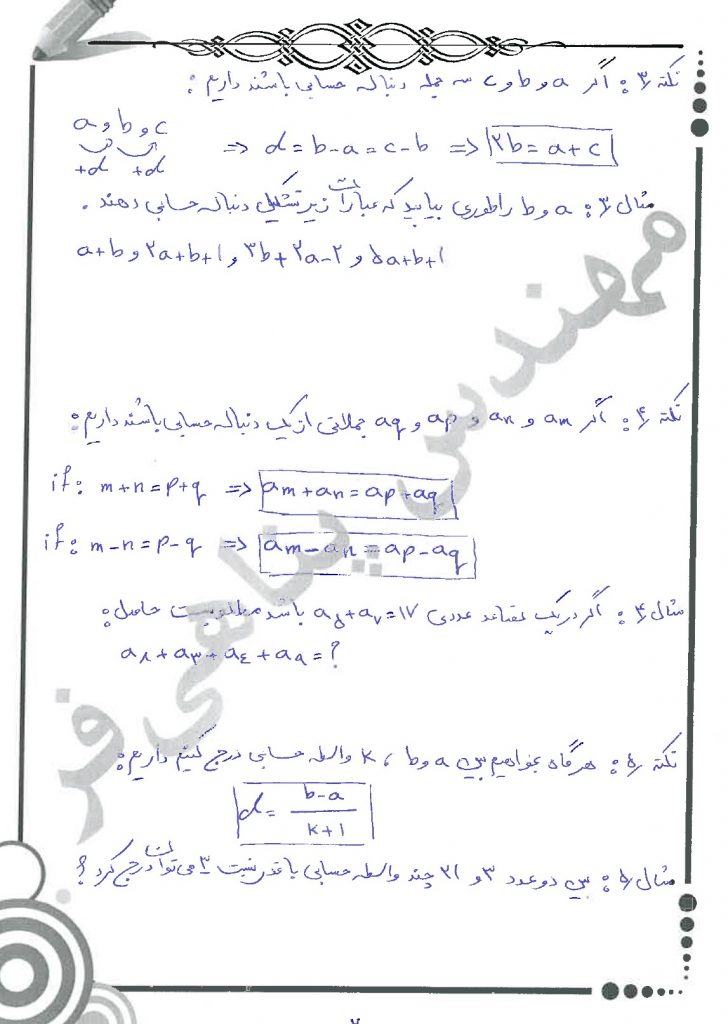 نکته ۳: اگر a و b و c سه جمله دنباله حسابی باشند داریم:
a و b و c
+d +d
=> d = b-a = c-b => ۲b = a+c
مثال ۳: a و b را طوری بیابید که عبارات زیر تشکیل دنباله حسابی دهند.
a+b و ۲a+b+۱ و ۳b+۲a-۲ و ۵a+b+۱
نکته ۴: اگر am و an و ap و aq جملاتی از یک دنباله حسابی باشند داریم:
if: m+n=p+q => am+an=ap+aq
if: m-n=p-q => am-an=ap-aq
مثال ۴: اگر در یک تصاعد عددی a۵+a۷=۱۷ باشد مطلوبست حاصل:
a۸+a۳+a٤+a۹=?
نکته ۵: هرگاه بخواهیم بین a و b، k واسطه حسابی درج کنیم داریم:
d = b-a / k+1
مثال ۵: بین دو عدد ۳ و ۳۱ چند واسطه حسابی با قدر نسبت می‌توان درج کرد؟
مهندس پناهی فر
۷